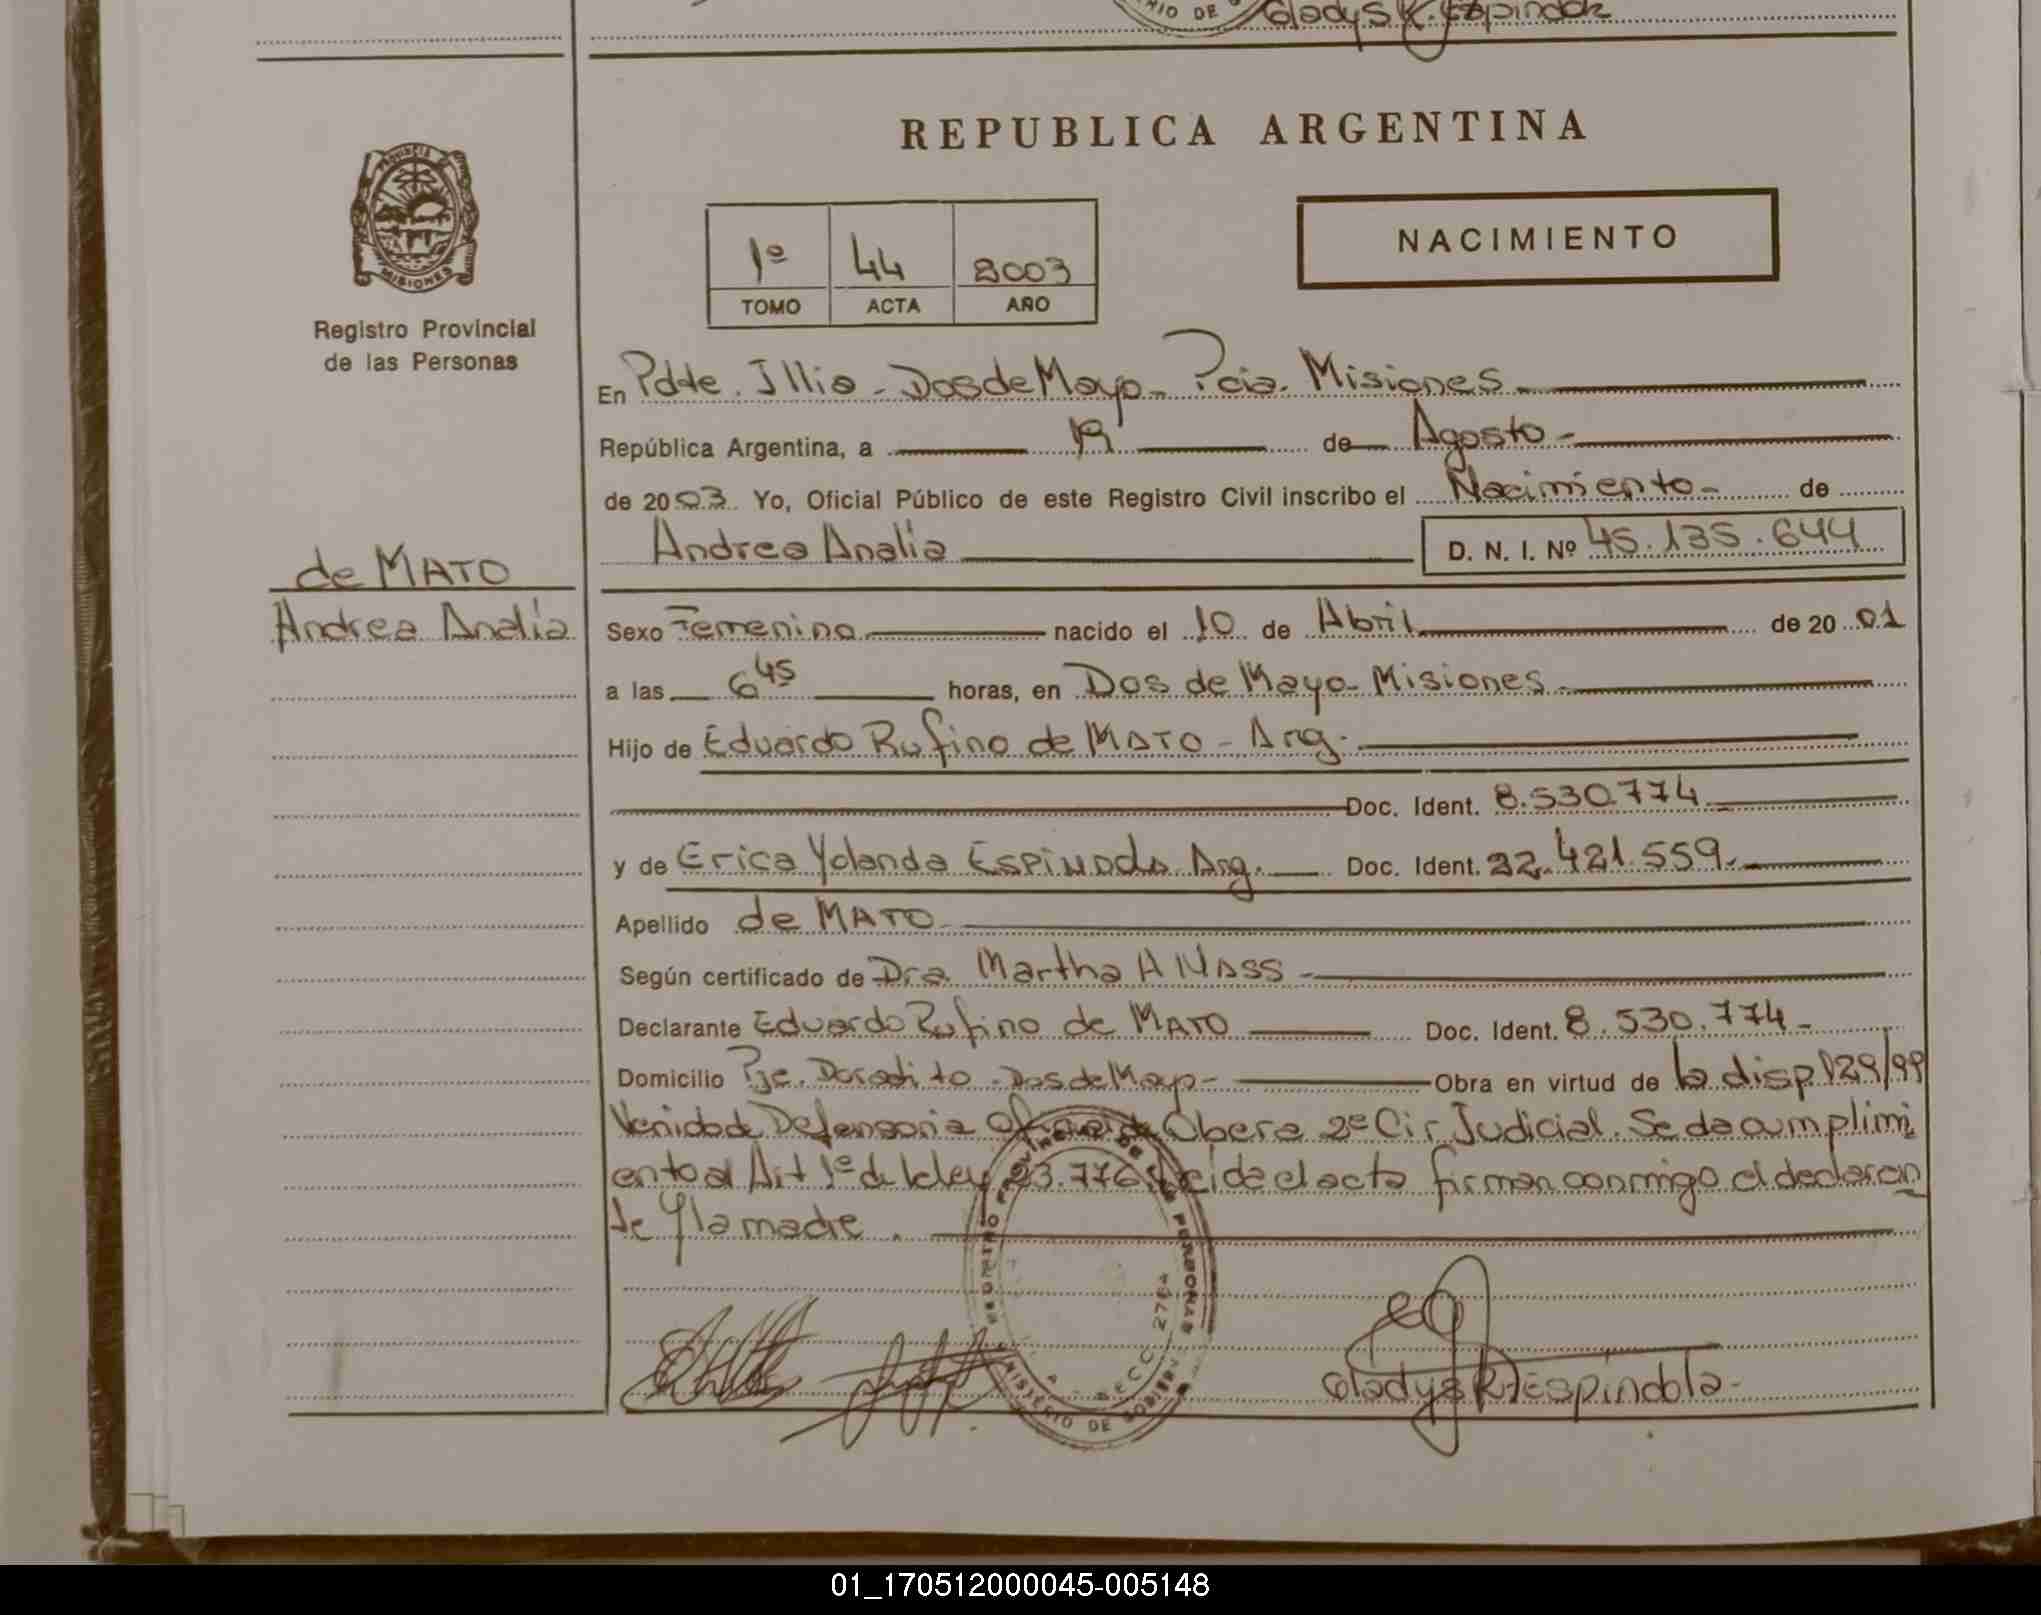 Gladys R. Espindola
REPUBLICA ARGENTINA
PROVINCIA
MISIONES
Registro Provincial
de las Personas
1º 44 2003
TOMO ACTA AÑO
NACIMIENTO
En Pdte. Illia - Dos de Mayo - Pcia. Misiones
República Argentina, a 19 de Agosto -
de 2003. Yo, Oficial Público de este Registro Civil inscribo el Nacimiento - de
Andrea Analia D. N. I. Nº 45.135.644
de MATO
Andrea Analia
Sexo Femenino nacido el 10 de Abril de 20 01
a las 6 45 horas, en Dos de Mayo - Misiones
Hijo de Eduardo Rufino de MATO - Arg.
Doc. Ident. 8.530.774
y de Erica Yolanda Espindola Arg. Doc. Ident. 22.421.559.
Apellido de MATO
Según certificado de Dra. Martha A Nass -
Declarante Eduardo Rufino de MATO Doc. Ident. 8.530.774 -
Domicilio Pje. Doradito - Dos de Mayo - Obra en virtud de la disp 129/99
Venida de Defensoria Oficial de Obera 2º Cir Judicial. Se da cumplimi
ento al Art 1º de la ley 23.776 Leida el acta firman conmigo el declaran
te y la madre.
REGISTRO PROVINCIAL DE LAS PERSONAS
MINISTERIO DE GOBIERNO
SECC. 2764
Gladys R Espindola -
01_170512000045-005148